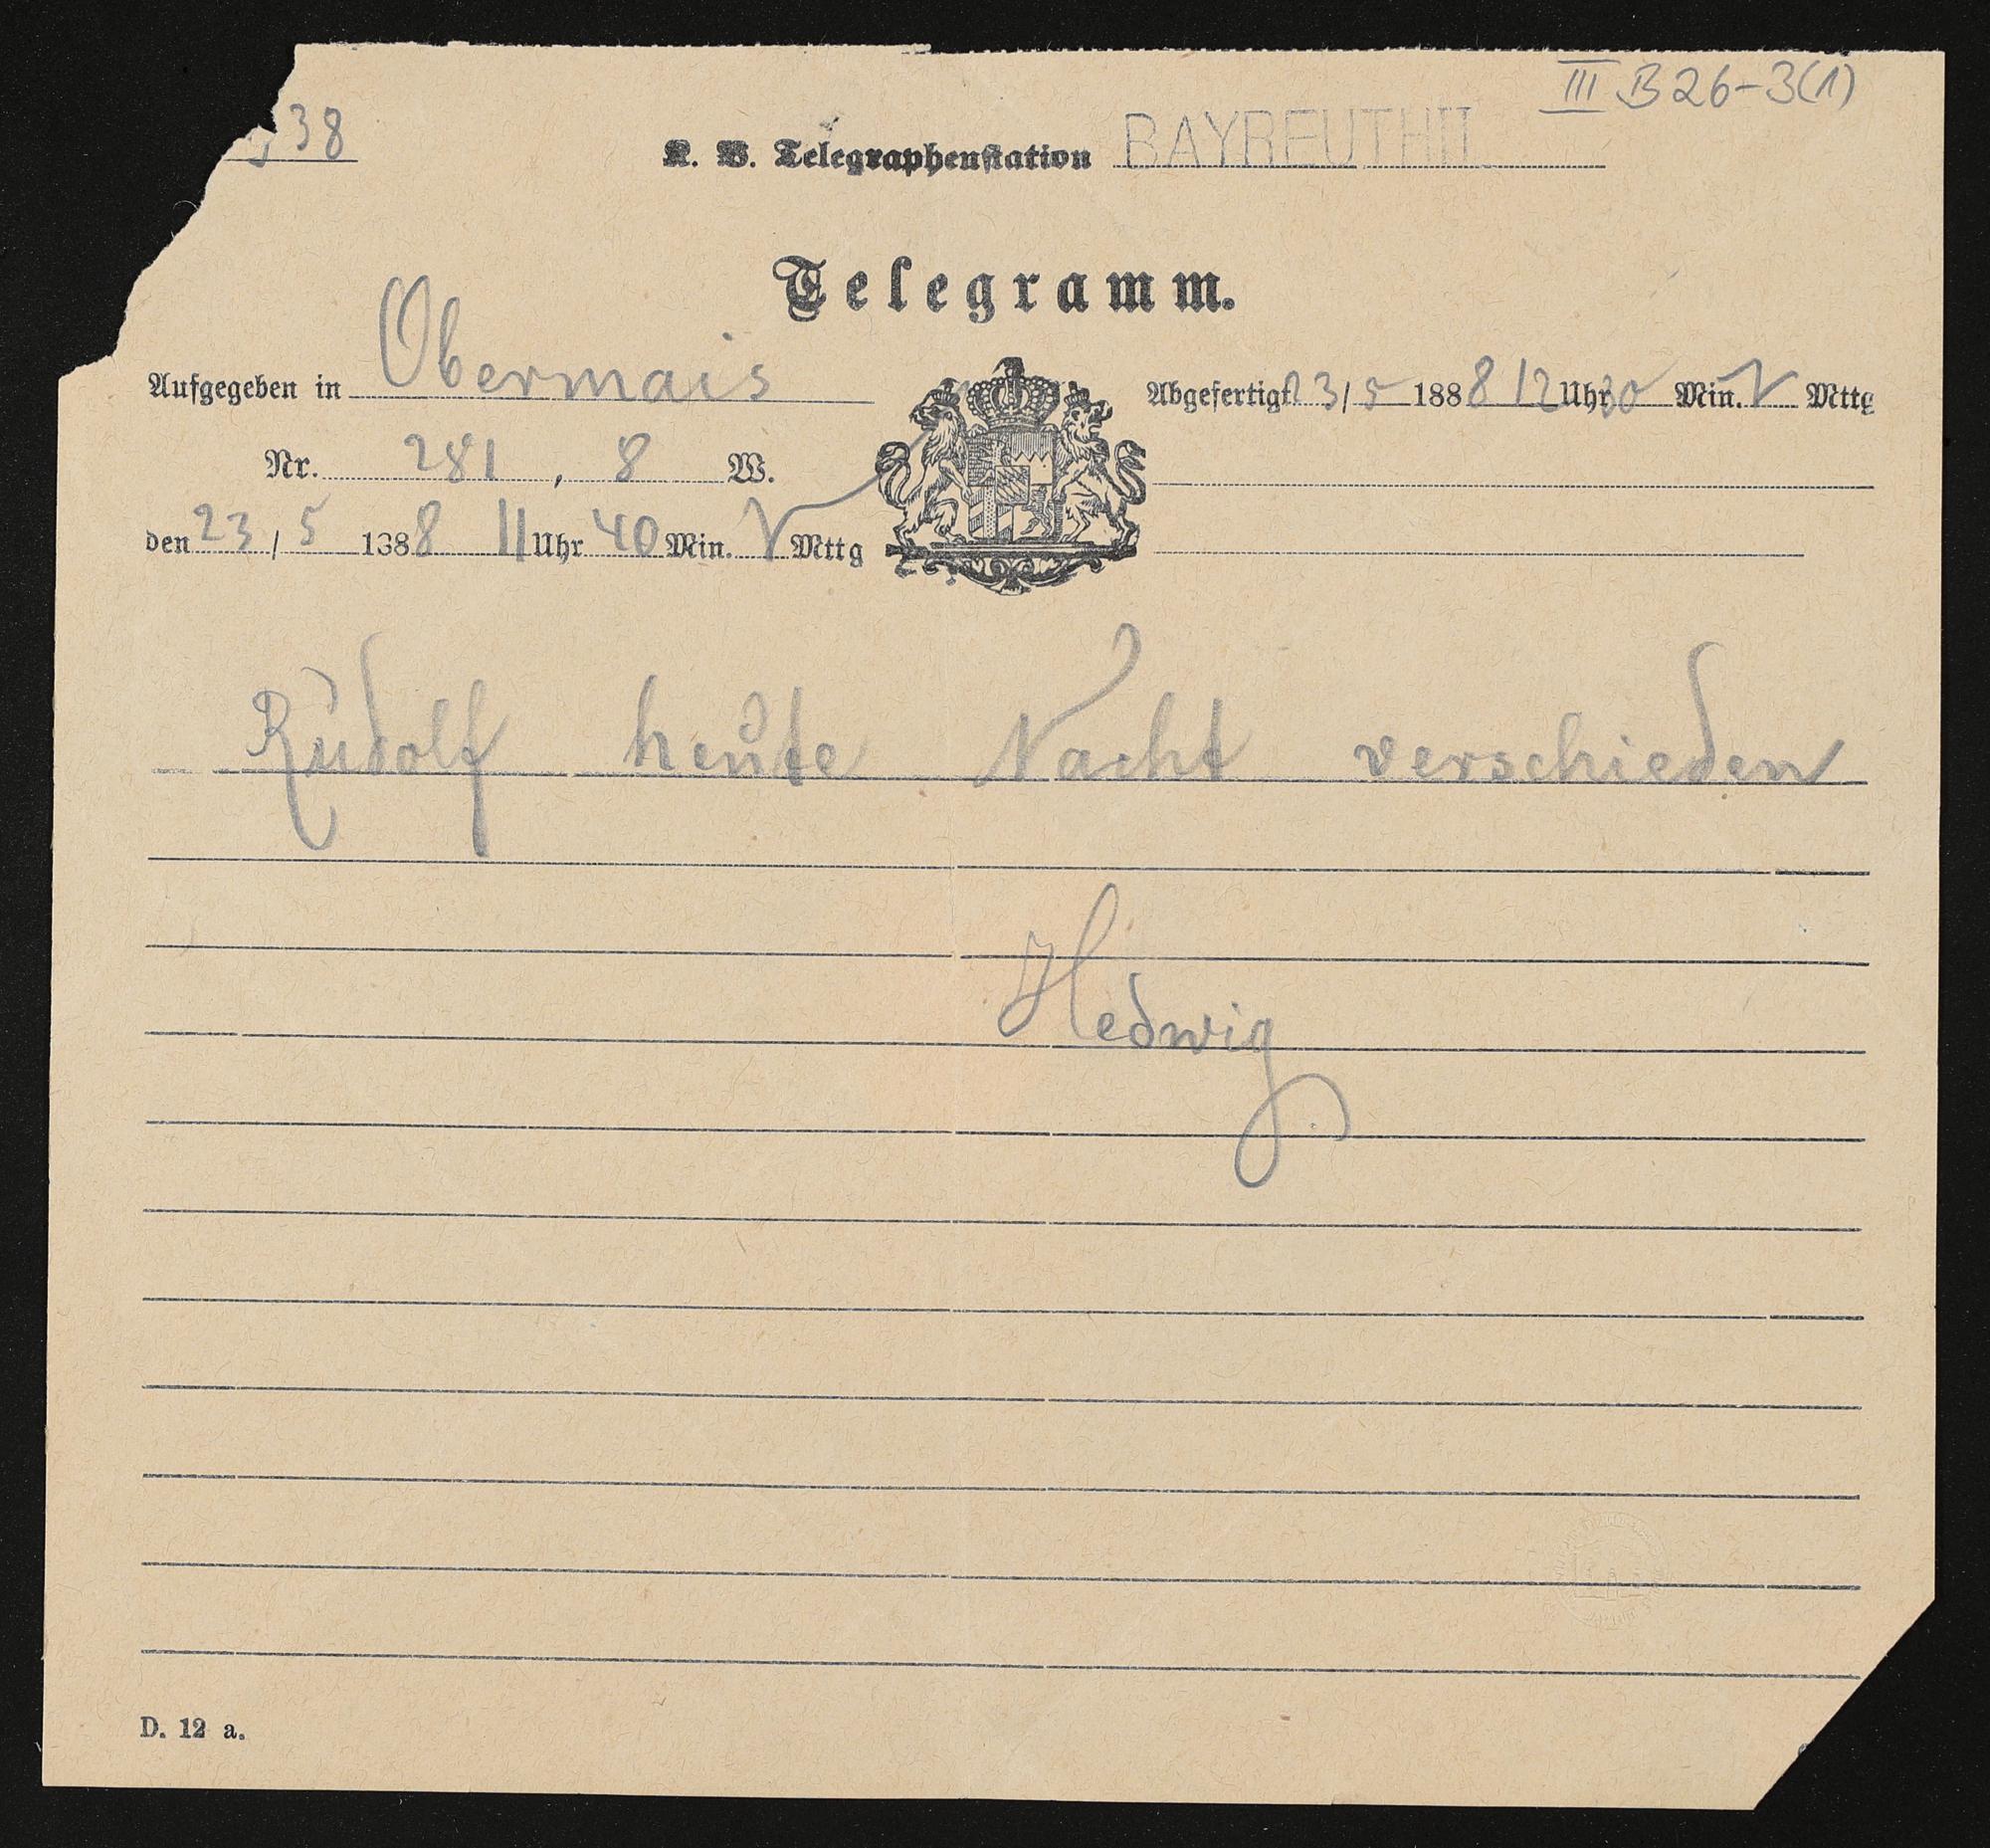 38
III B 26-3(1)
K. B. Telegraphenstation BAYREUTH II
Telegramm.
Aufgegeben in Obermais
Abgefertigt 23/5 1888 12 Uhr 30 Min. V Mttg
Nr. 281, 8 W.
den 23/5 1888 11 Uhr 40 Min. V Mttg
Rudolf heute Nacht verschieden
Hedwig
D. 12 a.